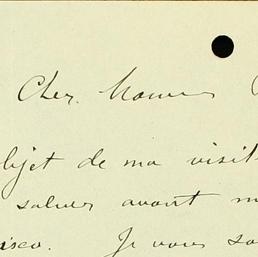 Cher
objet de ma visit
saluer avant m
isco. Je vous so